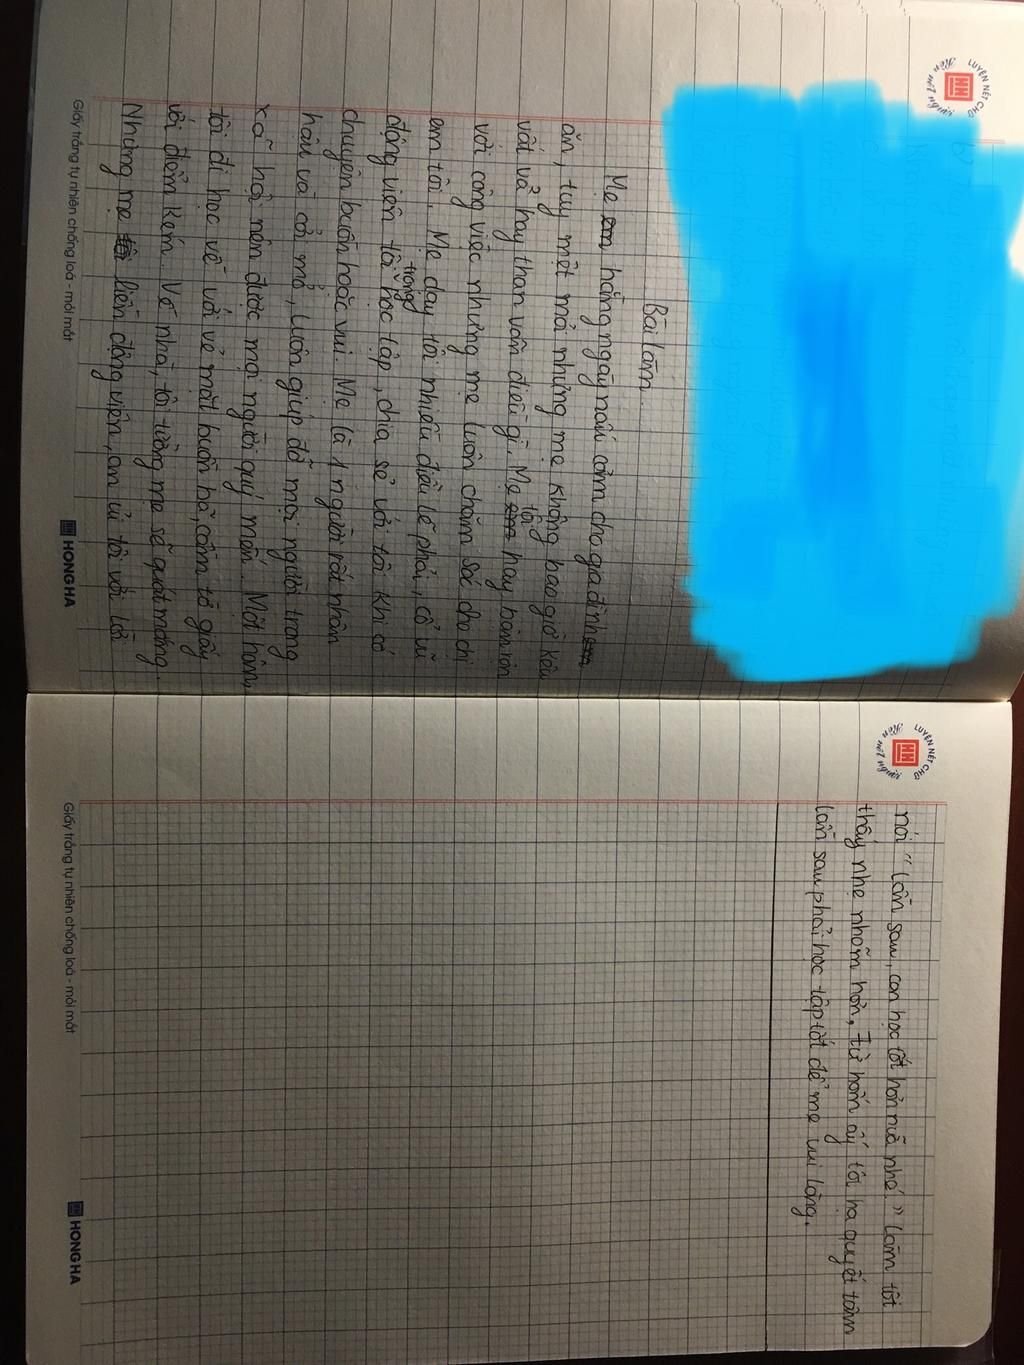 LUYỆN NÉT CHỮ
Rèn nết người
Bài làm
Mẹ hằng ngày nấu cơm cho gia đình
ăn, tuy mệt mỏi nhưng mẹ không bao giờ kêu
vất vả hay than vãn điều gì. Mẹ tôi hay bận rộn
với công việc nhưng mẹ luôn chăm sóc cho chị
em tôi. Mẹ dạy tôi nhiều điều lẽ phải, cổ vũ
động viên tôi trong học tập, chia sẻ với tôi khi có
chuyện buồn hoặc vui. Mẹ là 1 người rất nhân
hậu và cởi mở, luôn giúp đỡ mọi người trong
xã hội nên được mọi người quý mến. Một hôm,
tôi đi học về với vẻ mặt buồn bã, cầm tờ giấy
với điểm kém. Về nhà, tôi tưởng mẹ sẽ quát mắng.
Nhưng mẹ liền động viên, an ủi tôi với lời
Giấy trắng tự nhiên chống loá - mỏi mắt
HONG HA
LUYỆN NÉT CHỮ
Rèn nết người
nói "Lần sau, con học tốt hơn nữa nhé." Làm tôi
thấy nhẹ nhõm hơn, từ hôm ấy tôi hạ quyết tâm
lần sau phải học tập tốt để mẹ vui lòng.
Giấy trắng tự nhiên chống loá - mỏi mắt
HONG HA